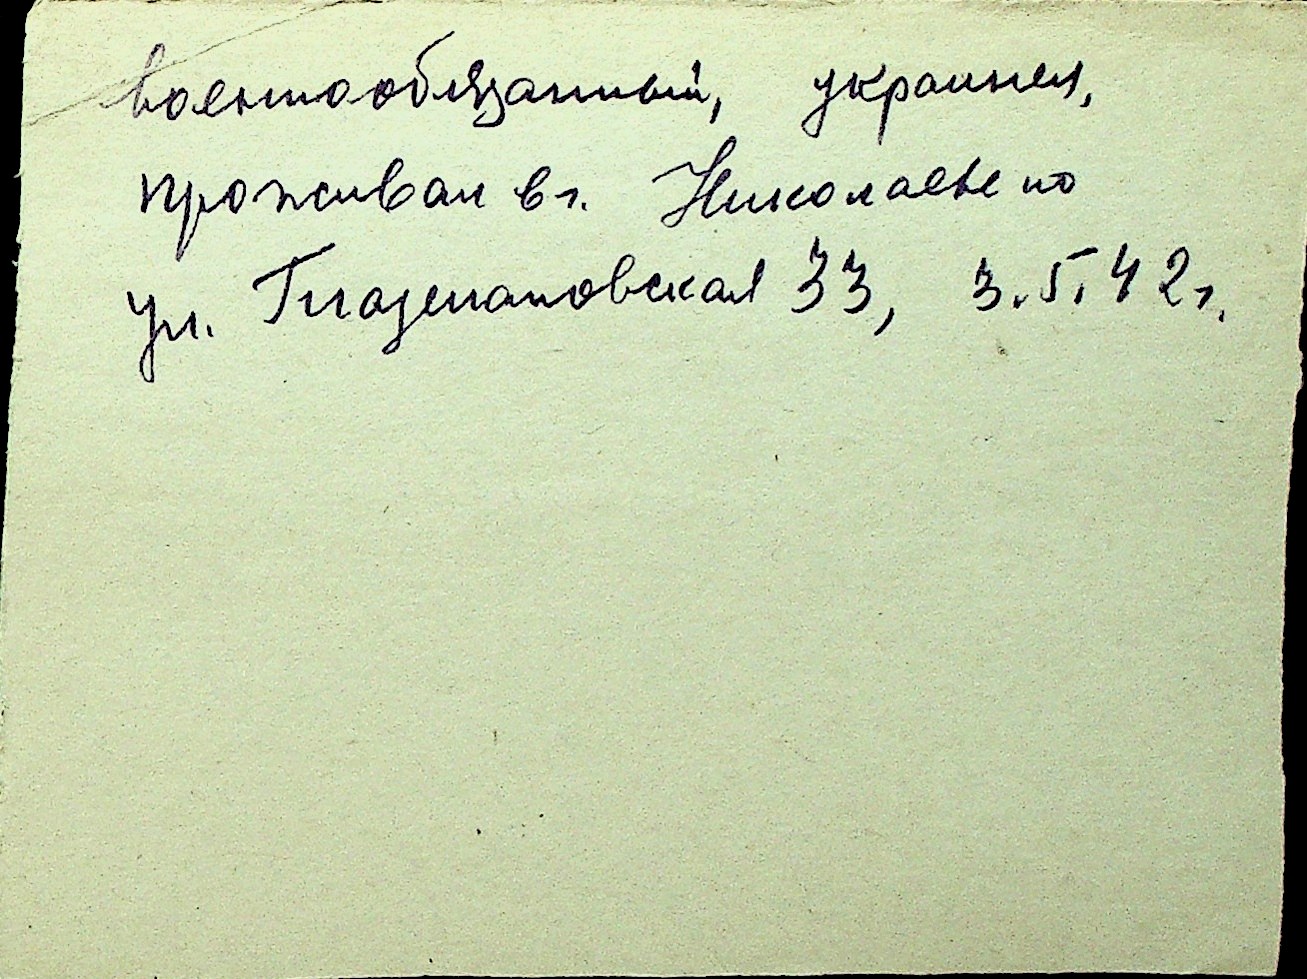 военнообязанный, украинец,
проживал в г. Николаеве по
ул. Глазенаповская 33, 3.5.42г.